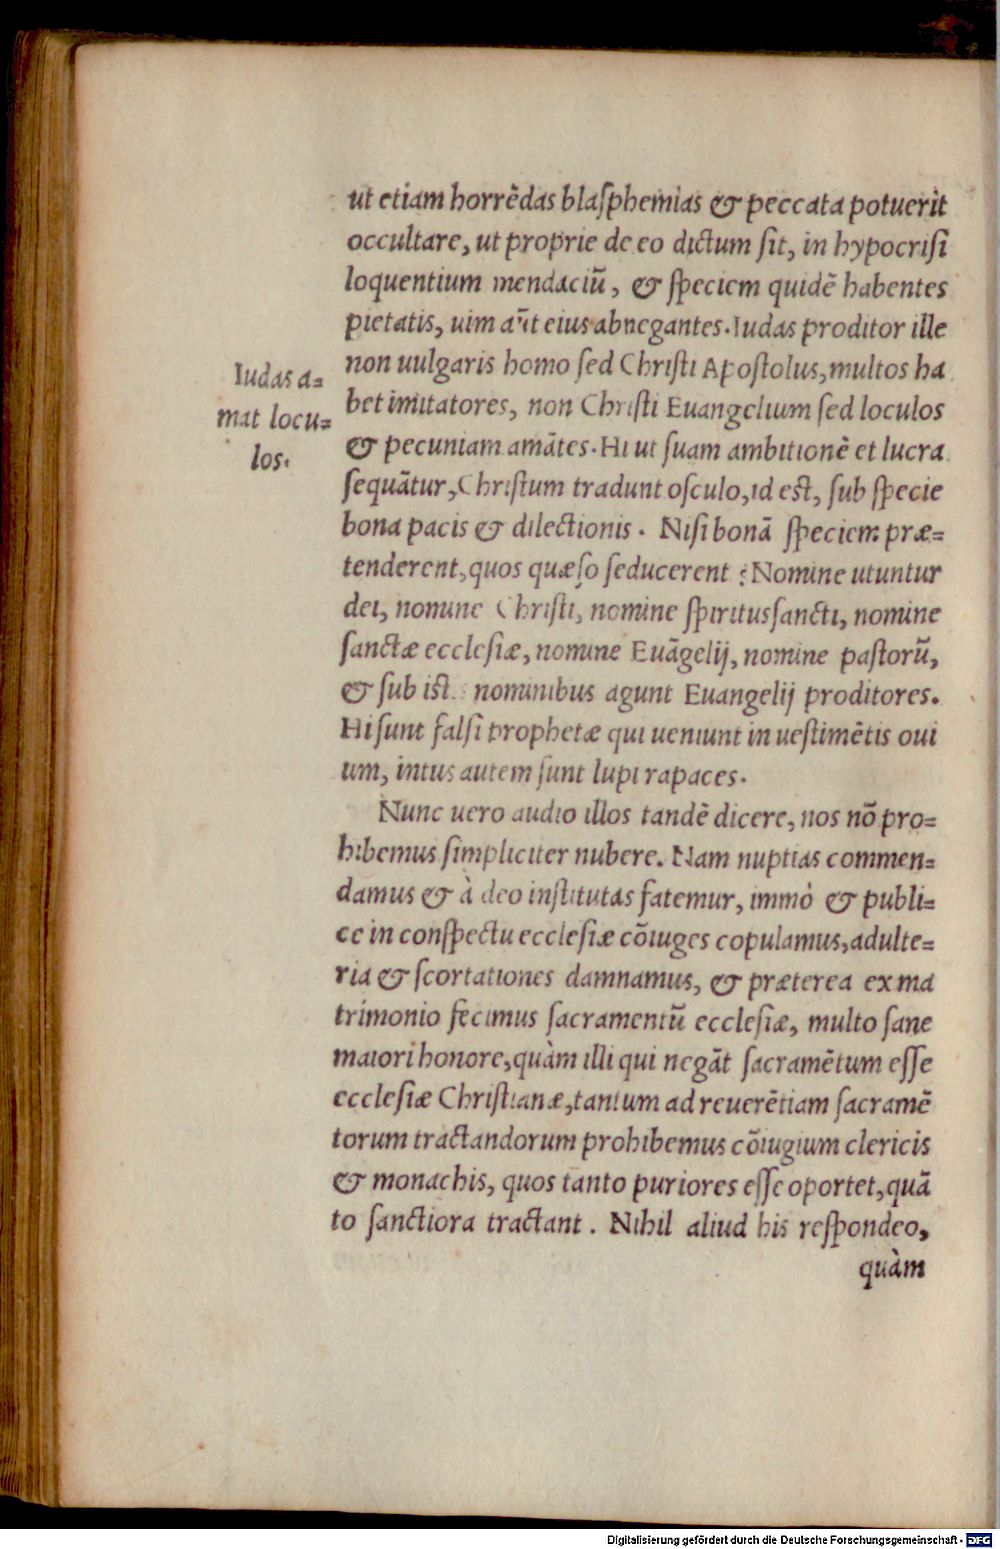 ut etiam horrẽdas blaſphemias & peccata potuerit
occultare, ut proprie de eo dictum ſit, in hypocriſi
loquentium mendaciũ, & ſpeciem quidẽ habentes
pietatis, uim aũt eius abnegantes. Iudas proditor ille
non uulgaris homo ſed Chriſti Apoſtolus, multos ha
bet imitatores, non Chriſti Euangelium ſed loculos
& pecuniam amãtes. Hi ut ſuam ambitionẽ et lucra
ſequãtur, Chriſtum tradunt oſculo, id eſt, ſub ſpecie
bona pacis & dilectionis. Niſi bonã ſpeciem præ=
tenderent, quos quæſo ſeducerent? Nomine utuntur
dei, nomine Chriſti, nomine ſpiritusſancti, nomine
ſanctæ eccleſiæ, nomine Euãgelij, nomine paſtorũ,
& ſub iſt s nominibus agunt Euangelij proditores.
Hi ſunt falſi prophetæ qui ueniunt in ueſtimẽtis oui
um, intus autem ſunt lupi rapaces.
Iudas a=
mat locu=
los.
Nunc uero audio illos tandẽ dicere, nos nõ pro=
hibemus ſimpliciter nubere. Nam nuptias commen=
damus & à deo inſtitutas fatemur, immò & publi=
ce in conſpectu eccleſiæ cõiuges copulamus, adulte=
ria & ſcortationes damnamus, & præterea ex ma
trimonio fecimus ſacramentũ eccleſiæ, multo ſane
maiori honore, quàm illi qui negãt ſacramẽtum eſſe
eccleſiæ Chriſtianæ, tantum ad reuerẽtiam ſacramẽ
torum tractandorum prohibemus cõiugium clericis
& monachis, quos tanto puriores eſſe oportet, quã
to ſanctiora tractant. Nihil aliud his reſpondeo,
quàm
Digitalisierung gefördert durch die Deutsche Forschungsgemeinschaft - DFG